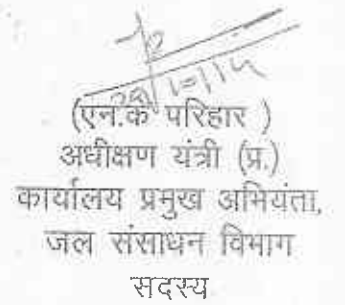 (एन.के परिहार )
अधीक्षण यंत्री (प्र.)
कार्यालय प्रमुख अभियंता,
जल संसाधन विभाग
सदस्य